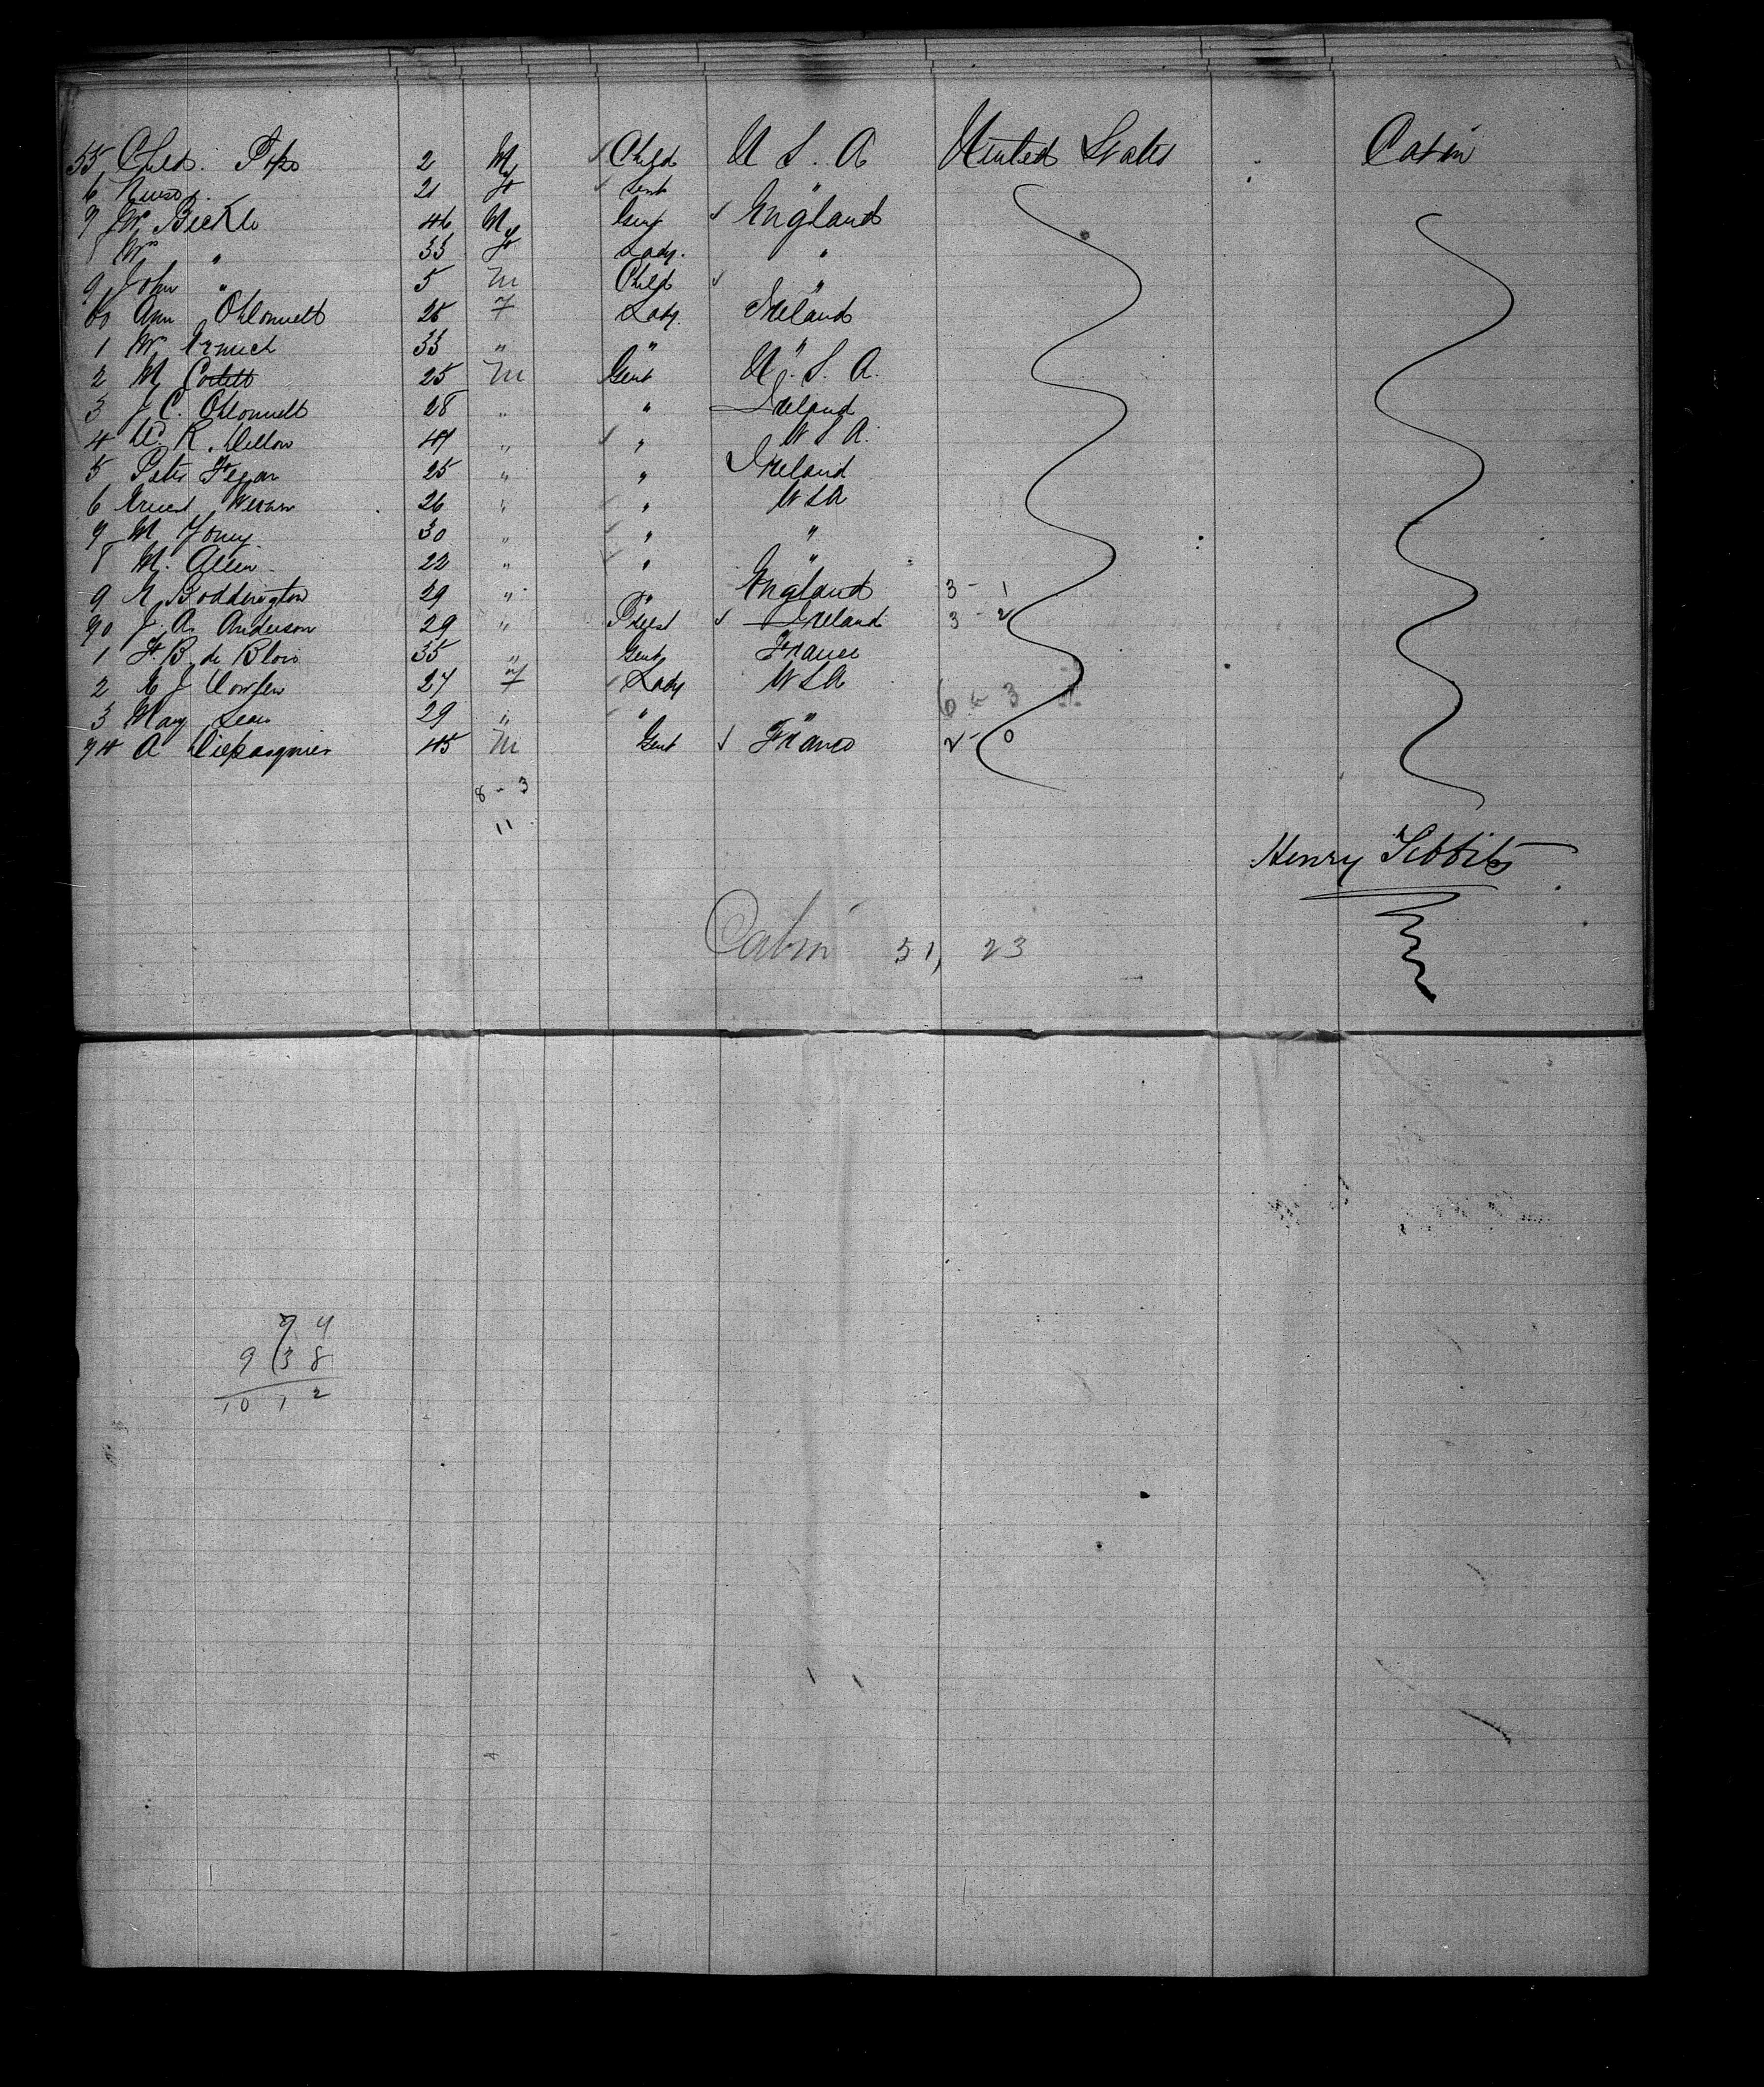 55 Child. Pope 2 M Child U S. A United States Cabin
6 Nurse " 21 F Servt "
7 Mr Bickle 46 M Gent England
8 Mrs " 33 F Lady. "
9 John " 5 M Child "
60 Ann O'Connell 25 F Lady. Ireland
1 Mrs 33 " " "
2 M Corbett 25 M Gent U. S. A.
3 J. C. O'Connell 28 " " Ireland
4 W. R. Dillon 47 " " U S A.
5 Peter Fegan 25 " " Ireland
6 Ernest 26 " " U S A
7 M 30 " " "
8 M. Allen 22 " " "
9 Boddington 29 " " England 3 - 1
70 J. A. Anderson 29 " Priest Ireland 3 - 2
1 F. B. de Blois 35 " Gent France
2 J 27 F Lady U S A 6 - 3
3 Mary Sears 29 " " "
74 A 45 M Gent France 2 - 0
8 - 3
11
Henry Tibbits
Cabin 51, 23
74
938
1012